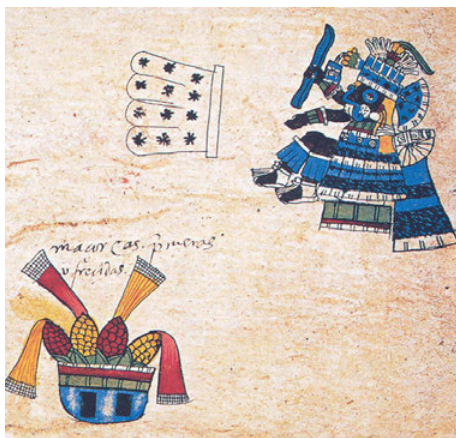 maçorcas. pimeras
ofrecidas.